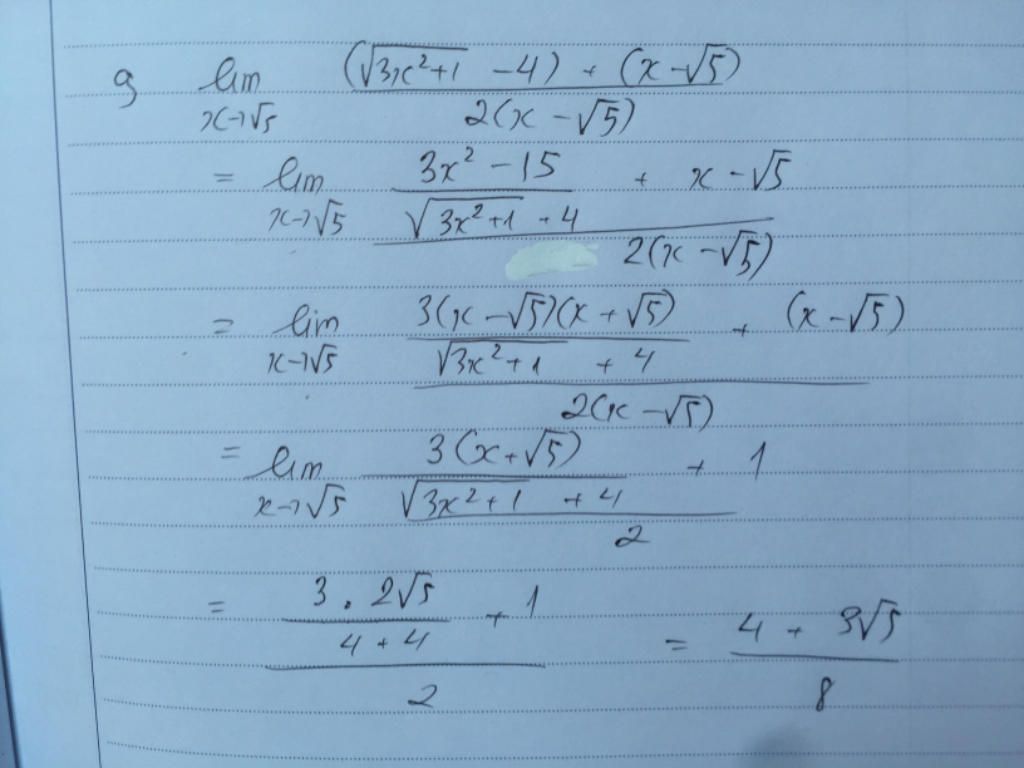 g lim x→√5 ((√(3x²+1) - 4) + (x - √5)) / (2(x - √5))
= lim x→√5 ((3x² - 15) / (√(3x²+1) + 4) + x - √5) / (2(x - √5))
= lim x→√5 ((3(x - √5)(x + √5)) / (√(3x²+1) + 4) + (x - √5)) / (2(x - √5))
= lim x→√5 ((3(x + √5)) / (√(3x²+1) + 4) + 1) / 2
= ((3 . 2√5) / (4 + 4) + 1) / 2 = (4 + 3√5) / 8